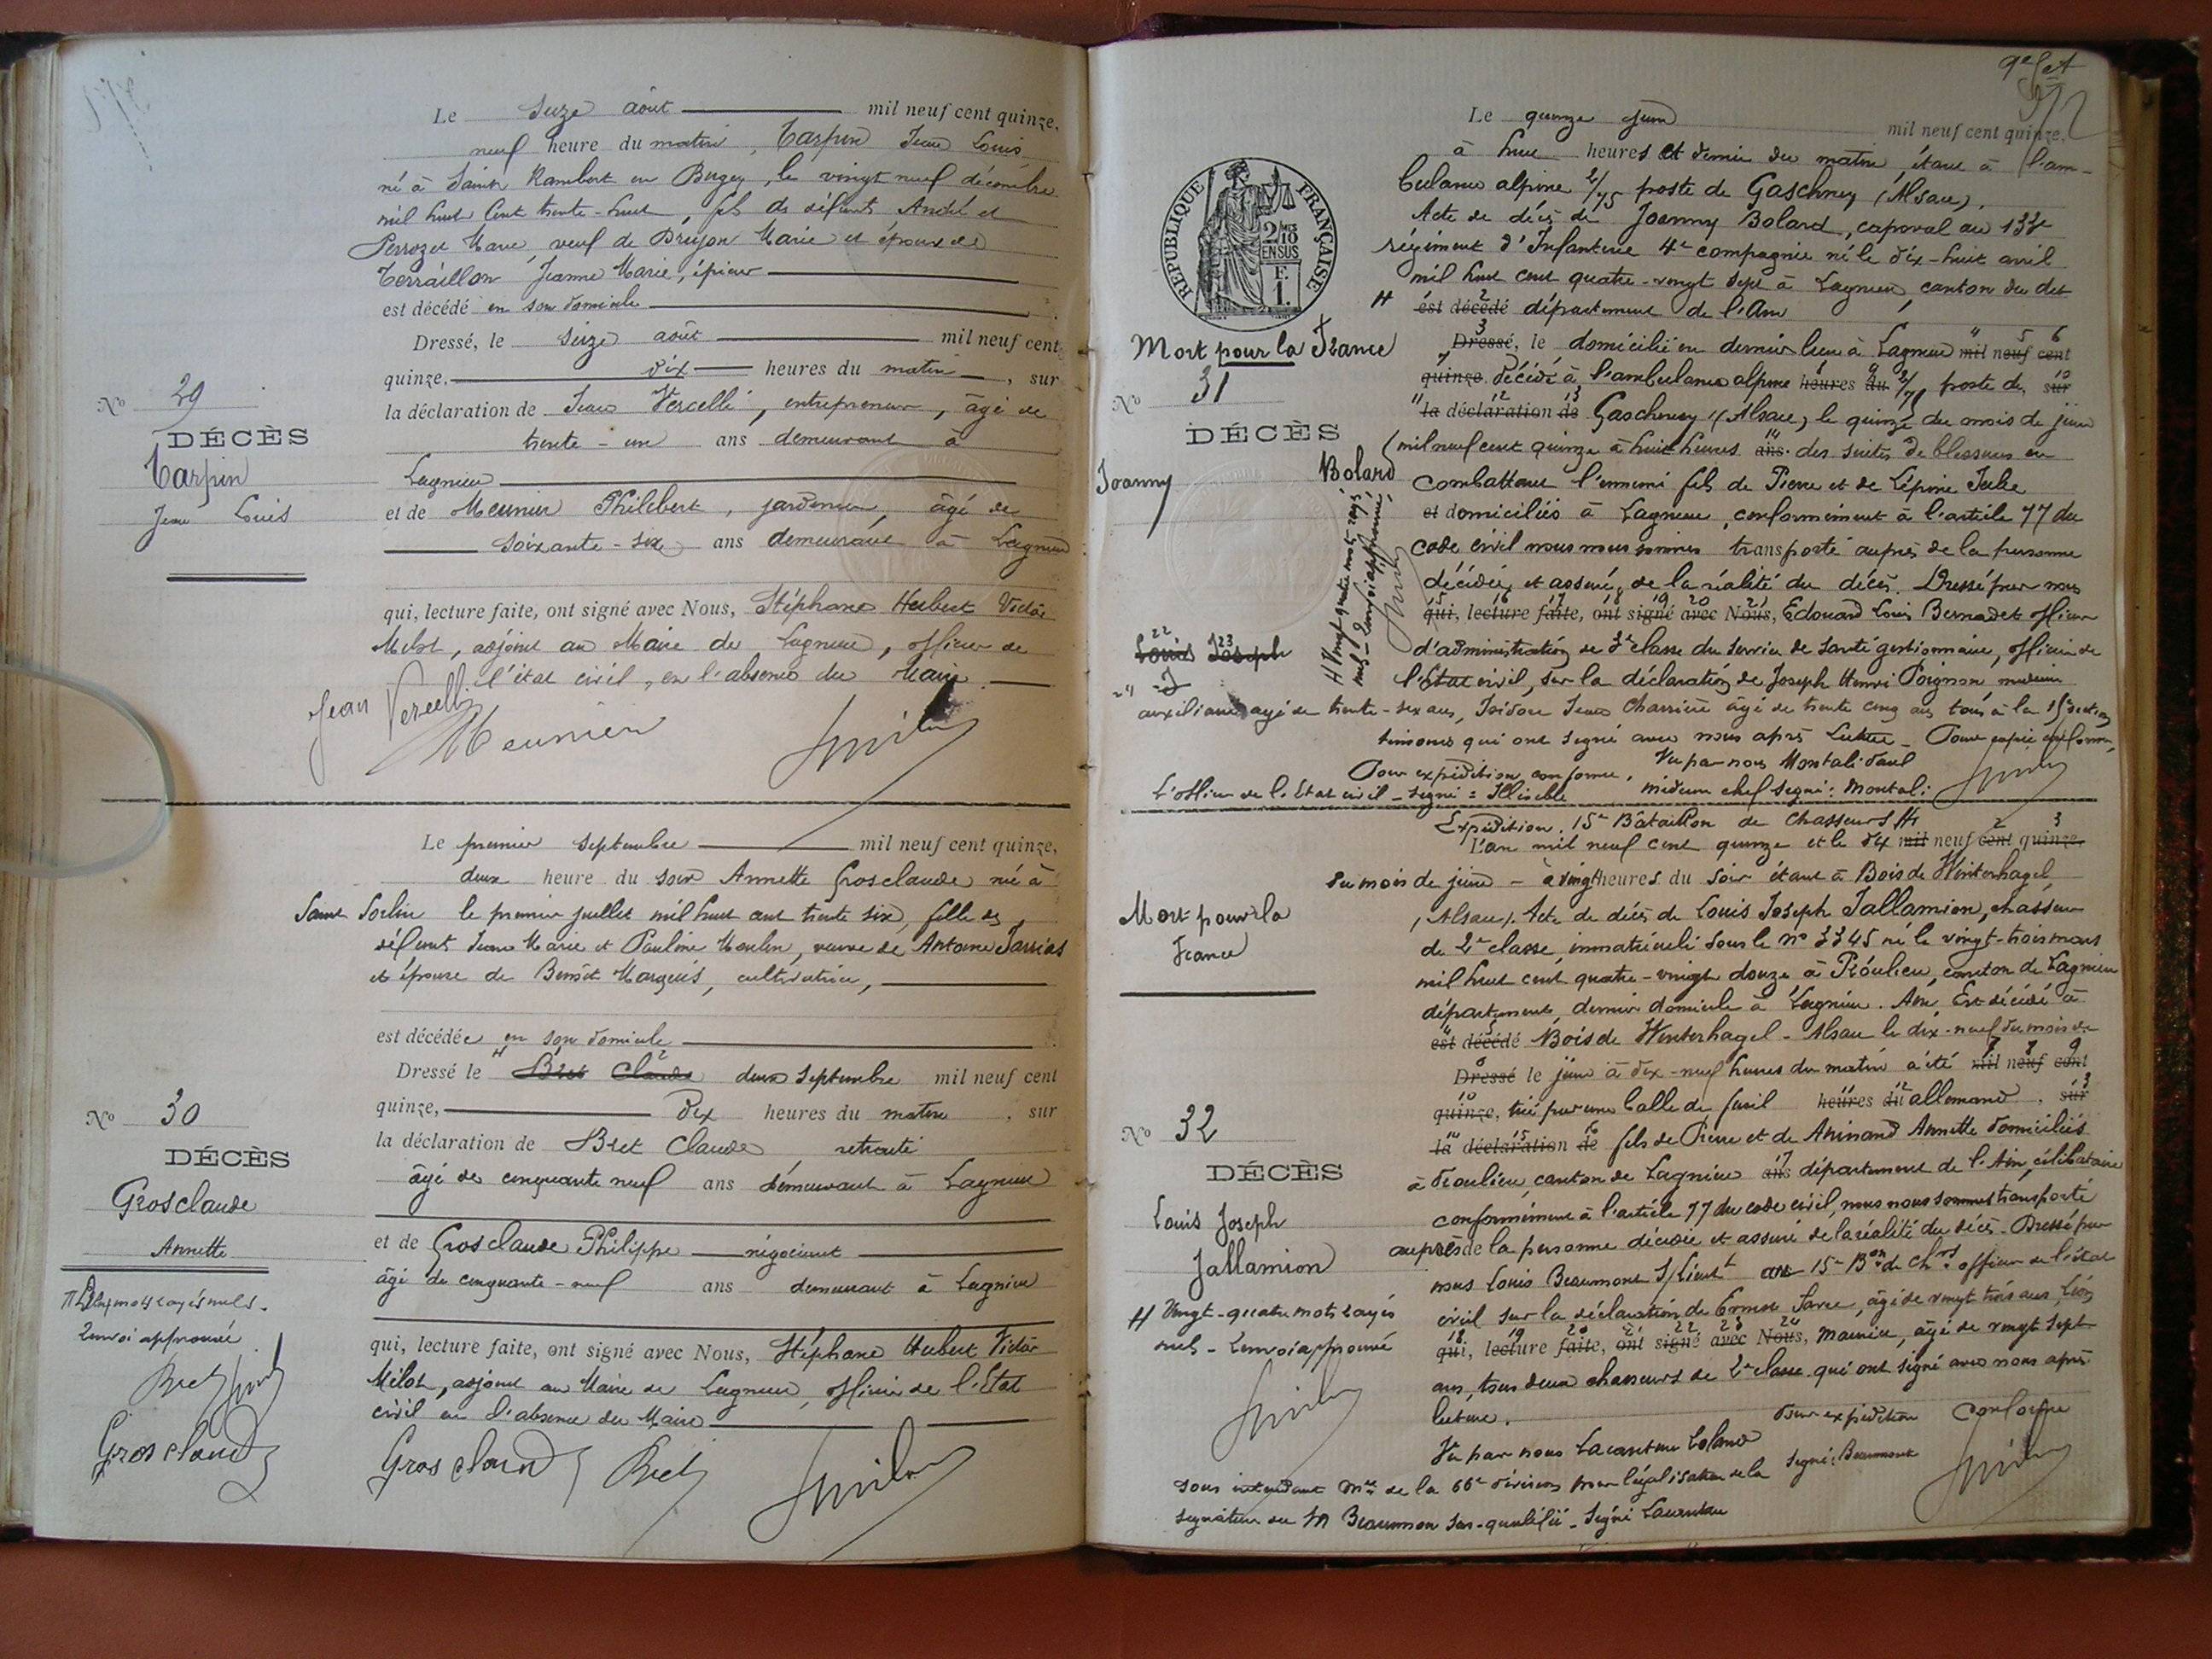 Le seize août mil neuf cent quinze,
neuf heure du matin, Tarpin Jean Louis
né à Saint Rambert en Bugey, le vingt neuf décembre
mil huit cent trente-huit, fils de défunts André et
Perrozet Marie, veuf de Drujon Marie et époux de
Terraillon Jeanne Marie, épicier
est décédé en son domicile
Dressé, le seize août mil neuf cent
quinze, dix heures du matin, sur
la déclaration de Jean Vercelli, entrepreneur, âgé de
trente-un ans demeurant à
Lagnieu
et de Meunier Philibert, jardinier, âgé de
soixante-six ans demeurant à Lagnieu
qui, lecture faite, ont signé avec Nous, Stéphane Hubert Victor
Milot, adjoint au Maire de Lagnieu, officier de
l'état civil, en l'absence du Maire.
Jean Vercelli
Meunier
No 29
DÉCÈS
Tarpin
Jean Louis
Le premier septembre mil neuf cent quinze,
deux heure du soir Annette Grosclaude né à
Saint Sorlin le premier juillet mil huit cent trente six, fille des
défunt Jean Marie et Pauline Moulin, veuve de Antoine Jarrias
et épouse de Benoît Marquis, cultivatrice,
est décédée en son domicile
Dressé le Bret Claude deux septembre mil neuf cent
quinze, dix heures du matin, sur
la déclaration de Bret Claude retraité
âgé de cinquante neuf ans demeurant à Lagnieu
et de Grosclaude Philippe négociant
âgé de cinquante-neuf ans demeurant à Lagnieu
qui, lecture faite, ont signé avec Nous, Stéphane Hubert Victor
Milot, adjoint au Maire de Lagnieu, officier de l'Etat
civil en l'absence du Maire
Grosclaude Bret
No 30
DÉCÈS
Grosclaude
Annette
Deux mots rayés nuls.
Renvoi approuvé
Bret
Grosclaude
Le quinze juin mil neuf cent quinze,
à huit heures et demie du matin, étant à l'am-
bulance alpine 2/75 poste de Gaschney (Alsace).
Acte de décès de Joanny Bolard, caporal au 133e
régiment d'Infanterie 4e compagnie né le dix-huit avril
mil huit cent quatre-vingt sept à Lagnieu, canton du dit
est décédé département de l'Ain
Dressé, le domicilié en dernier lieu à Lagnieu mil neuf cent
quinze, décédé à l'ambulance alpine heures du 2/75 poste de sur
la déclaration de Gaschney (Alsace) le quinze du mois de juin
mil neuf cent quinze à huit heures ans des suites de blessures en
combattant l'ennemi fils de Pierre et de Lépine Julie
et domiciliés à Lagnieu, conformément à l'article 77 du
code civil nous nous sommes transporté auprès de la personne
décédée et assuré de la réalité du décès. Dressé par nous
qui, lecture faite, ont signé avec Nous, Edouard Louis Bernadet officier
d'administration de 3e classe du service de santé gestionnaire, officier de
l'état civil, sur la déclaration de Joseph Henri Poignon, médecin
auxiliaire âgé de trente-six ans, Isidore Jean Charrière âgé de trente cinq ans tous à la section
témoins qui ont signé avec nous après lecture. Pour copie conforme,
Pour expédition conforme. Vu par nous Montali Paul
L'officier de l'Etat civil - signé : Illisible médecin chef signé : Montali
RÉPUBLIQUE FRANÇAISE
2/10 MES EN SUS
F. 1.
Mort pour la France
No 31
DÉCÈS
Joanny Bolard
Vingt quatre mots rayés
nuls - Renvoi approuvé
Louis Joseph
Expédition. 15e Bataillon de Chasseurs
L'an mil neuf cent quinze et le dix mil neuf cent quinze
du mois de juin - à vingt heures du soir étant à Bois de Winterhagel,
(Alsace). Acte de décès de Louis Joseph Jallamion, chasseur
de 2e classe, immatriculé sous le no 3345 né le vingt-trois mars
mil huit cent quatre-vingt douze à Proulieu, canton de Lagnieu
département, dernier domicile à Lagnieu. Ain, Est décédé à
est décédé Bois de Winterhagel - Alsace le dix-neuf du mois de
Dressé le juin à dix-neuf heures du matin a été mil neuf cent
quinze, tué par une balle de fusil heures du allemand, sur
la déclaration de fils de Pierre et de Aninand Annette domiciliés
à Proulieu, canton de Lagnieu ans département de l'Ain, célibataire
conformément à l'article 77 du code civil, nous nous sommes transporté
auprès de la personne décédée et assuré de la réalité du décès. Dressé par
nous Louis Beaumont S/Lieut au 15e Bon de Chrs officier de l'état
civil sur la déclaration de Ernest Favre, âgé de vingt trois ans, Léon
qui, lecture faite, ont signé avec Nous, Mathieu, âgé de vingt sept
ans, tous deux chasseurs de 2e classe qui ont signé avec nous après
lecture. Pour expédition conforme
Vu par nous Signé : Beaumont
sous intendant Mre de la 66e division pour légalisation de la
signature de M Beaumont sus-qualifié - Signé
Mort pour la
France
No 32
DÉCÈS
Louis Joseph
Jallamion
Vingt-quatre mots rayés
nuls - Renvoi approuvé